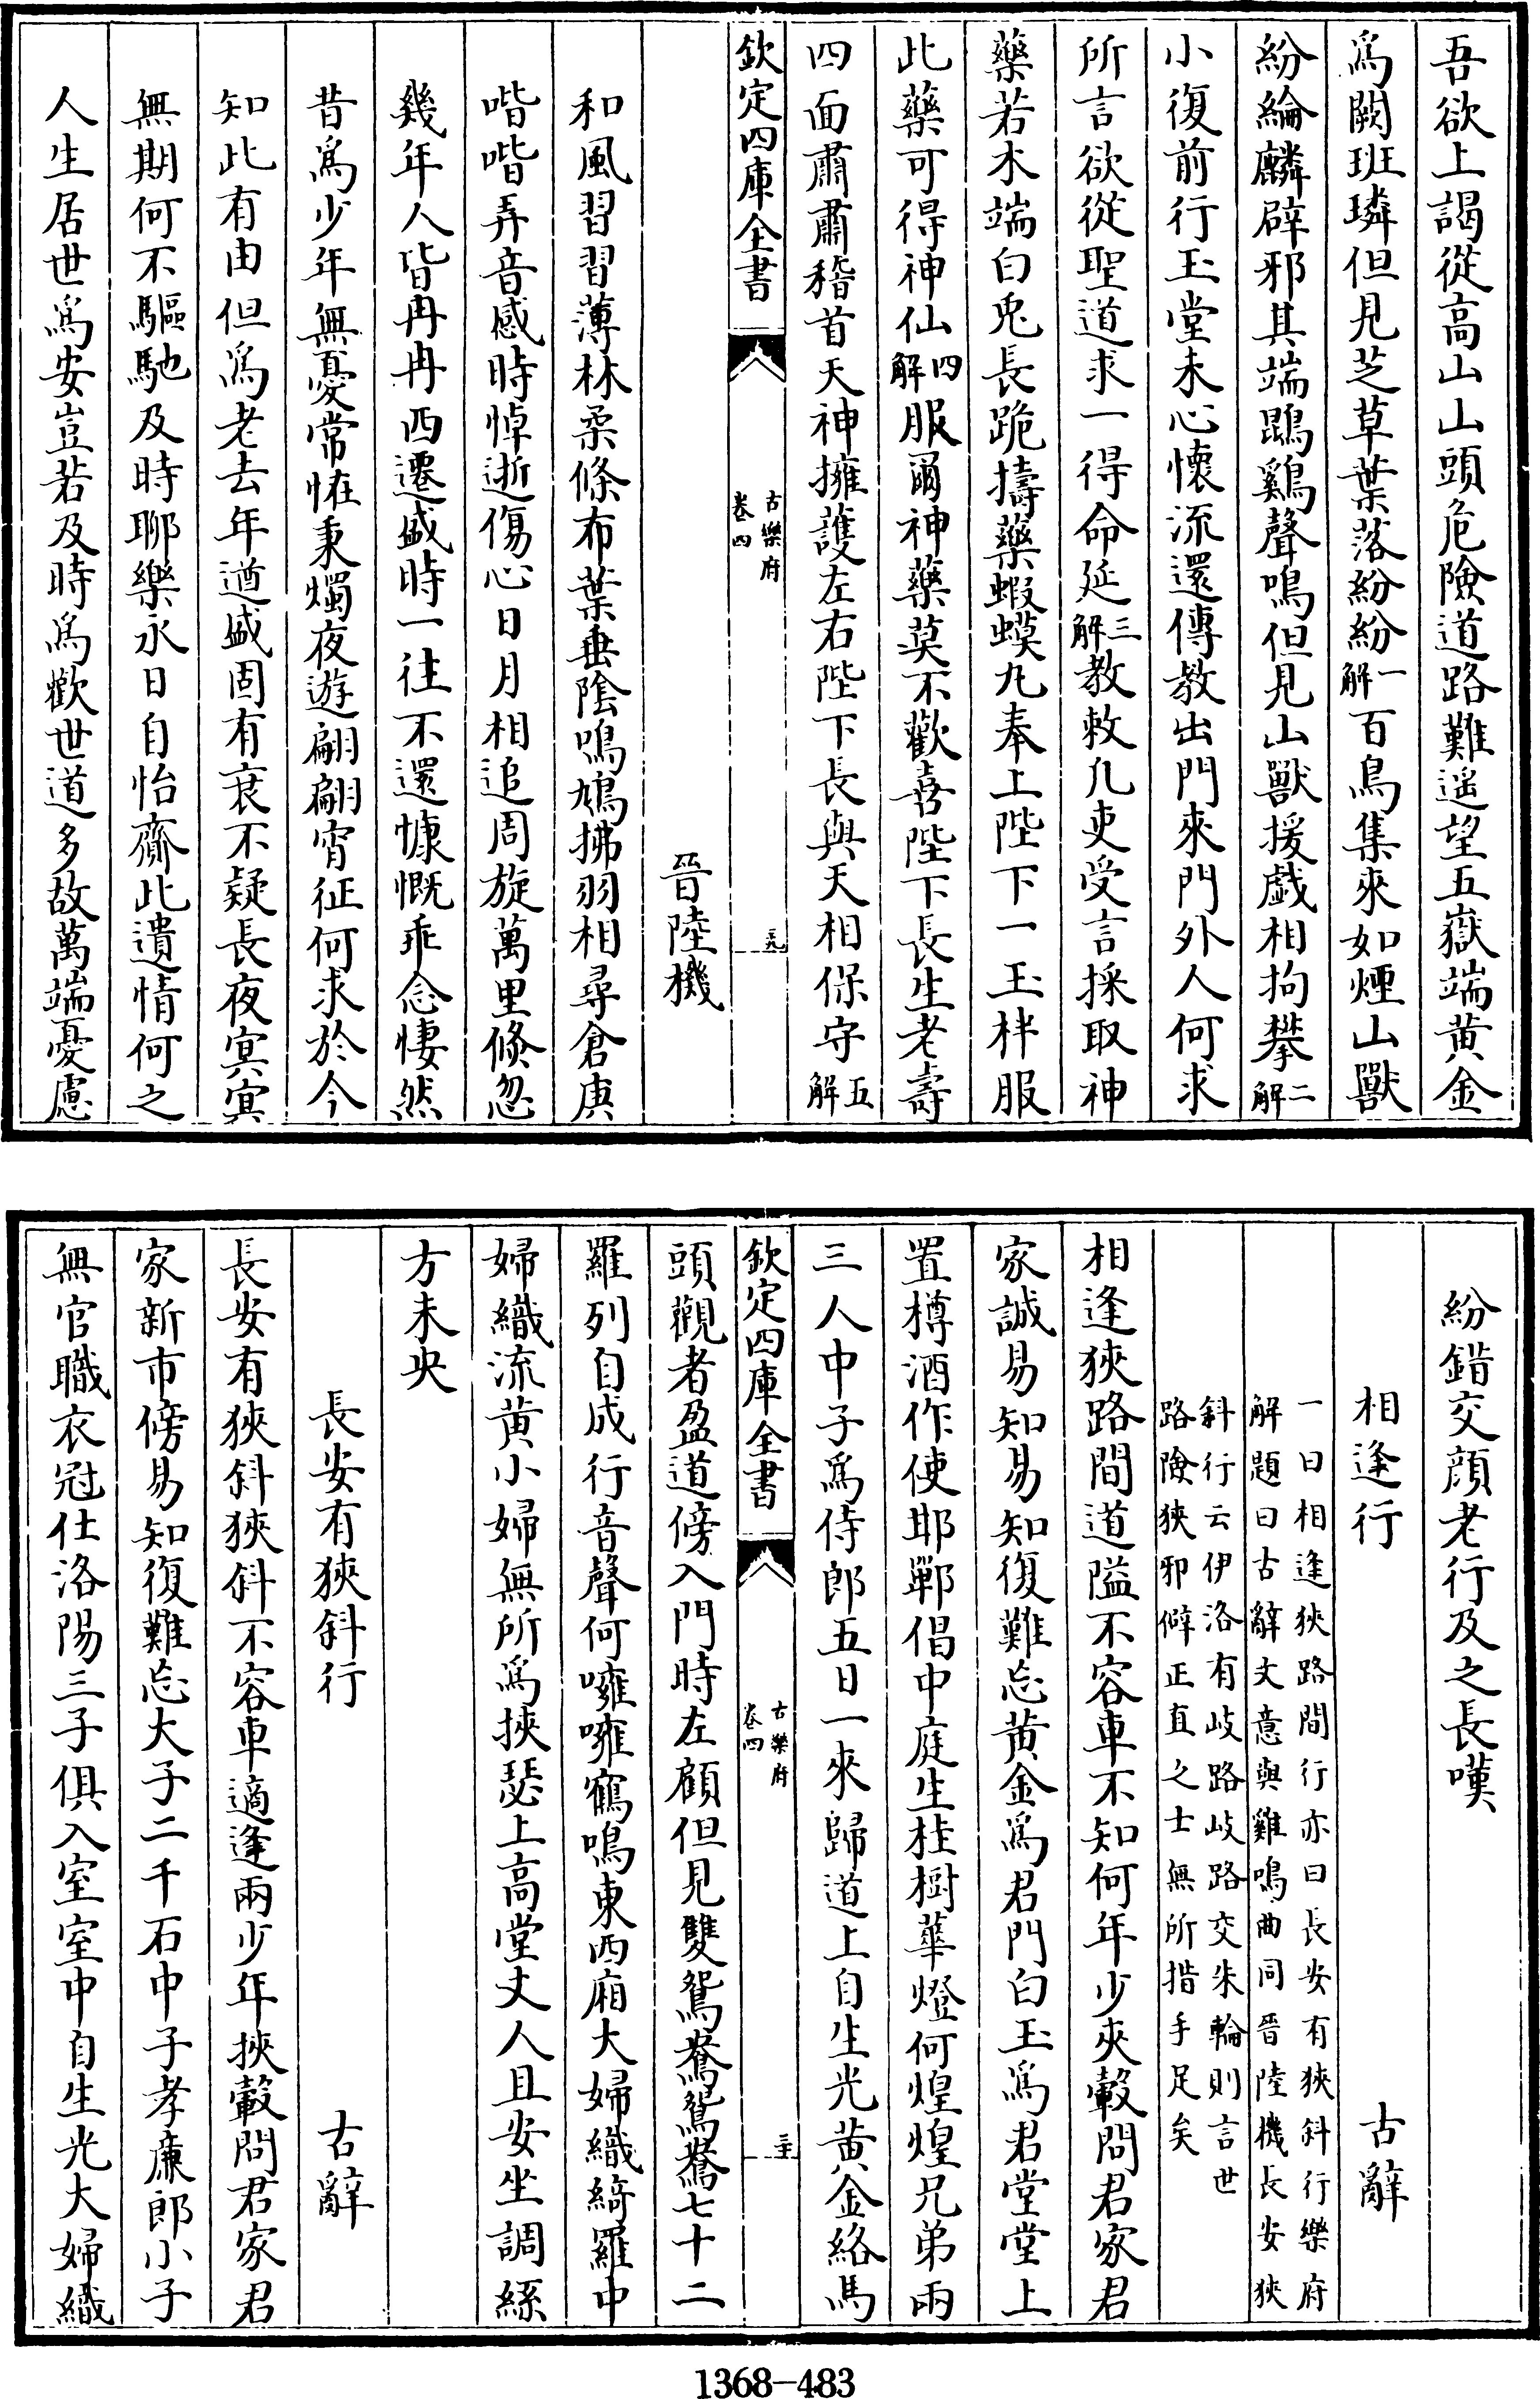 吾欲上謁從高山山頭危險道路難遥望五嶽端黄金
爲闕班璘但見芝草葉落紛紛一解百鳥集來如煙山獸
紛綸麟辟邪其端鵾鷄聲鳴但見山獸援戲相拘攀二解
小復前行玉堂未心懷流還傳教出門來門外人何求
所言欲從聖道求一得命延三解教敕凡吏受言採取神
藥若木端白兎長跪擣藥蝦蟆丸奉上陛下一玉柈服
此藥可得神仙四解服爾神藥莫不歡喜陛下長生老壽
四面肅肅稽首天神擁護左右陛下長與天相保守五解
欽定四庫全書
古樂府
卷四
三九
晉陸機
和風習習薄林柔條布葉垂陰鳴鳩拂羽相尋倉庚
喈喈弄音感時悼逝傷心日月相追周旋萬里倏忽
幾年人皆冉冉西遷盛時一往不還慷慨乖念悽然
昔爲少年無憂常恠秉燭夜遊翩翩宵征何求於今
知此有由但爲老去年遒盛固有衰不疑長夜冥冥
無期何不驅馳及時聊樂永日自怡齎此遺情何之
人生居世爲安豈若及時爲歡世道多故萬端憂慮
紛錯交顔老行及之長嘆
相逢行
古辭
一曰相逢狹路間行亦曰長安有狹斜行樂府
解題曰古辭文意與雞鳴曲同晉陸機長安狹
斜行云伊洛有岐路岐路交朱輪則言世
路險狹邪僻正直之士無所措手足矣
相逢狹路間道隘不容車不知何年少夾轂問君家君
家誠易知易知復難忘黄金爲君門白玉爲君堂堂上
置樽酒作使邯鄲倡中庭生桂樹華燈何煌煌兄弟兩
三人中子爲侍郎五日一來歸道上自生光黄金絡馬
欽定四庫全書
古樂府
卷四
三十
頭觀者盈道傍入門時左顧但見雙鴛鴦鴛鴦七十二
羅列自成行音聲何噰噰鶴鳴東西廂大婦織綺羅中
婦織流黄小婦無所爲挾瑟上高堂丈人且安坐調絲
方未央
長安有狹斜行
古辭
長安有狹斜狹斜不容車適逢兩少年挾轂問君家君
家新市傍易知復難忘大子二千石中子孝廉郎小子
無官職衣冠仕洛陽三子俱入室室中自生光大婦織
1368-483